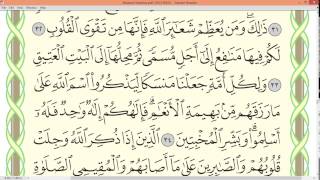 ٣١ ذَٰلِكَ وَمَن يُعَظِّمْ شَعَـٰٓئِرَ ٱللَّهِ فَإِنَّهَا مِن تَقْوَى ٱلْقُلُوبِ ٣٢
لَكُمْ فِيهَا مَنَـٰفِعُ إِلَىٰٓ أَجَلٍ مُّسَمًّى ثُمَّ مَحِلُّهَآ إِلَى ٱلْبَيْتِ ٱلْعَتِيقِ
٣٣ وَلِكُلِّ أُمَّةٍ جَعَلْنَا مَنسَكًا لِّيَذْكُرُوا۟ ٱسْمَ ٱللَّهِ عَلَىٰ
مَا رَزَقَهُم مِّنۢ بَهِيمَةِ ٱلْأَنْعَـٰمِ فَإِلَـٰهُكُمْ إِلَـٰهٌ وَٰحِدٌ فَلَهُۥٓ
أَسْلِمُوا۟ وَبَشِّرِ ٱلْمُخْبِتِينَ ٣٤ ٱلَّذِينَ إِذَا ذُكِرَ ٱللَّهُ وَجِلَتْ
قُلُوبُهُمْ وَٱلصَّـٰبِرِينَ عَلَىٰ مَآ أَصَابَهُمْ وَٱلْمُقِيمِى ٱلصَّلَوٰةِ